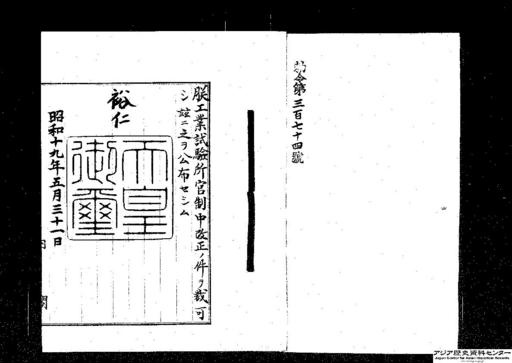 勅令第三百七十四號
朕工業試驗所官制中改正ノ件ヲ裁可
シ茲ニ之ヲ公布セシム
裕仁
天皇
御璽
昭和十九年五月三十一日
内
閣
アジア歴史資料センター
Japan Center for Asian Historical Records